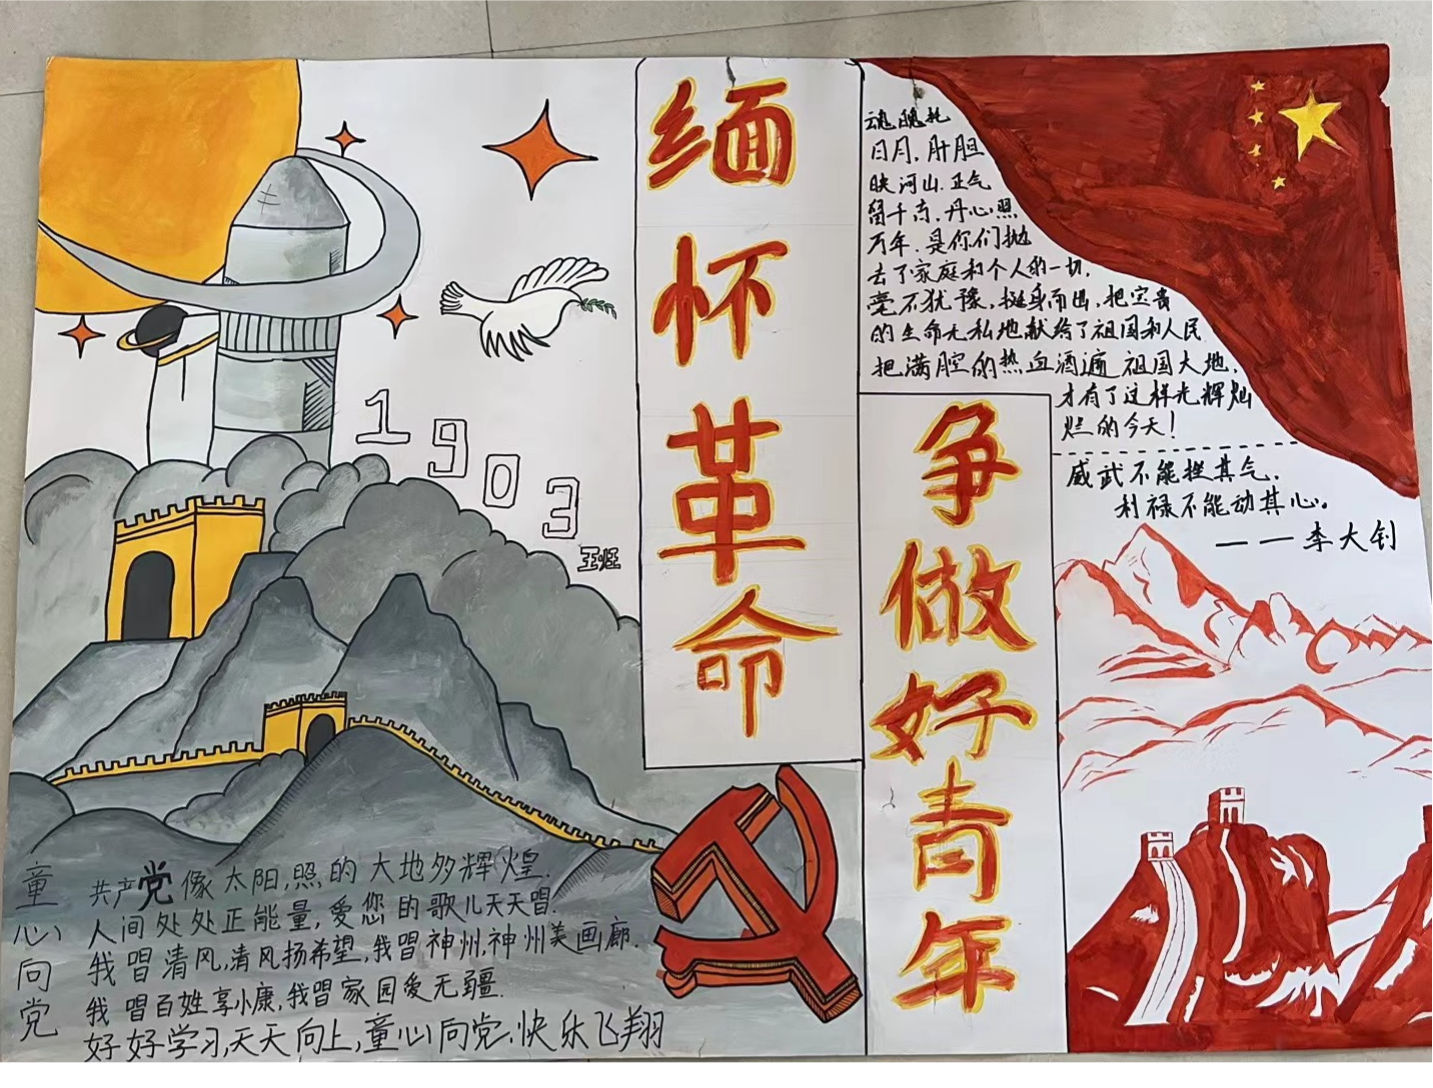 缅怀革命
争做好青年
魂魄托
日月,肝胆
映河山.正气
留千古,丹心照
万年.是你们抛
去了家庭和个人的一切,
毫不犹豫,挺身而出,把宝贵
的生命无私地献给了祖国和人民
把满腔的热血洒遍祖国大地,
才有了这样光辉灿
烂的今天!
威武不能挫其气,
利禄不能动其心。
——李大钊
1903
王班
童心向党
共产党像太阳,照的大地多辉煌.
人间处处正能量,爱您的歌儿天天唱.
我唱清风,清风扬希望,我唱神州,神州美画廊.
我唱百姓享小康,我唱家园爱无疆.
好好学习,天天向上,童心向党,快乐飞翔